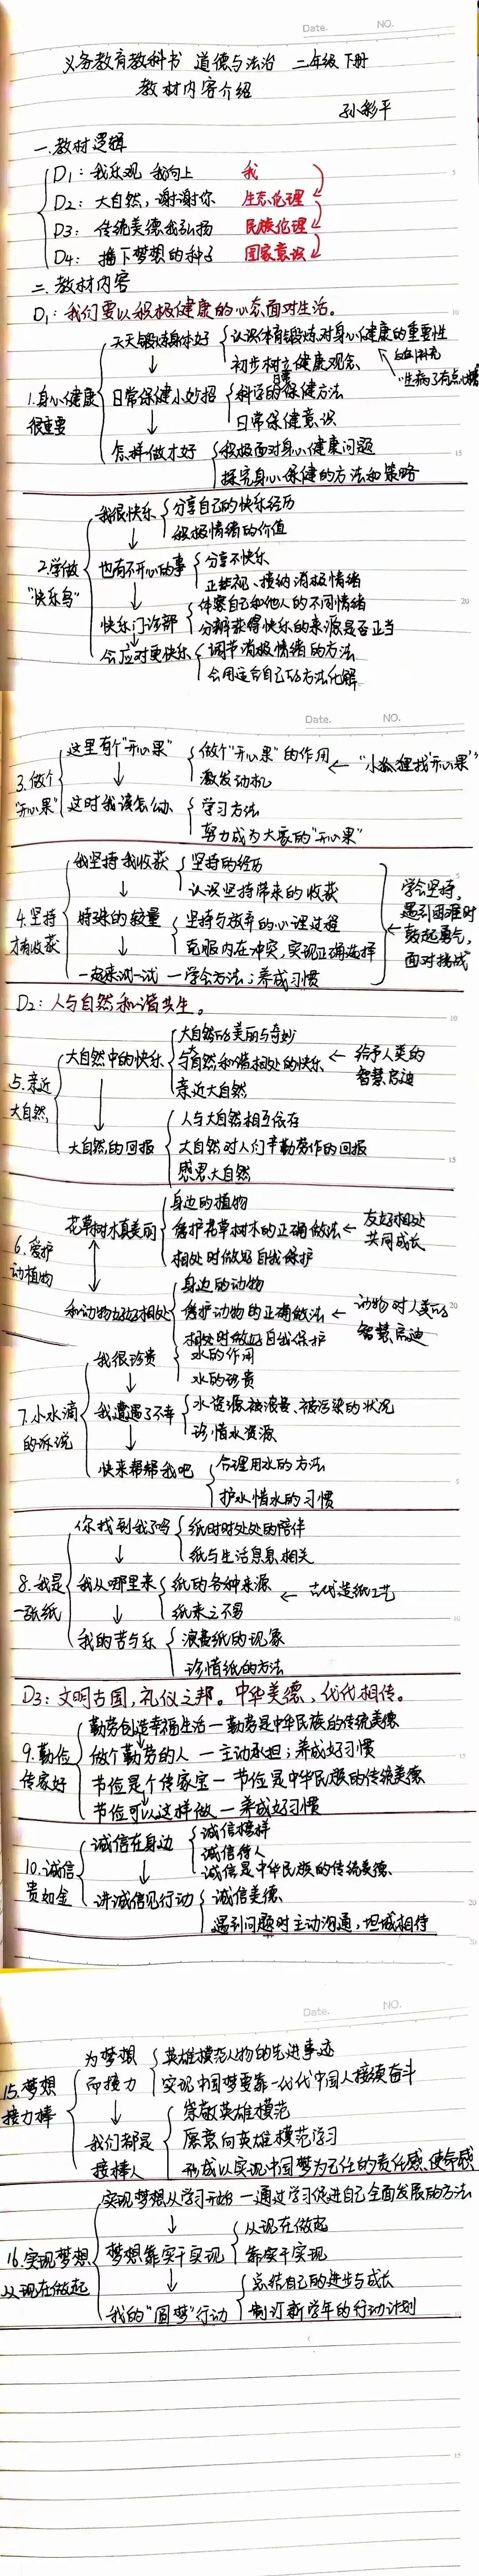 Date. NO.
义务教育教科书 道德与法治 二年级下册
教材内容介绍
孙彩平
一.教材逻辑
D1：我乐观 我向上 我
D2：大自然，谢谢你 生态伦理
D3：传统美德我弘扬 民族伦理
D4：播下梦想的种子 国家意识
二.教材内容
D1：我们要以积极健康的心态面对生活。
1.身心健康很重要
天天锻炼身体好
认识体育锻炼对身心健康的重要性
初步树立健康观念
"生病了有点心情
日常保健小妙招
科学的日常保健方法
日常保健意识
怎样做才好
积极面对身心健康问题
探究身心保健的方法和策略
2.学做"快乐鸟"
我很快乐
分享自己的快乐经历
积极情绪的价值
也有不开心的事
分享不快乐
正确视、接纳消极情绪
快乐门诊部
体察自己和他人的不同情绪
分辨获得快乐的来源是否正当
会应对更快乐
调节消极情绪的方法
会用适合自己的方法化解
Date. NO.
3.做个"开心果"
这里有个"开心果"
做个"开心果"的作用
激发动机
"小狐狸找'开心果'"
这时我该怎么办
学习方法
努力成为大家的"开心果"
4.坚持才有收获
我坚持我收获
坚持的经历
认识坚持带来的收获
特殊的较量
坚持与放弃的心理过程
克服内在冲突，实现正确选择
一起来试一试 — 学会方法；养成习惯
学会坚持，
遇到困难时
鼓起勇气，
面对挑战
D2：人与自然和谐共生。
5.亲近大自然
大自然中的快乐
大自然的美丽与奇妙
与自然和谐相处的快乐
亲近大自然
给予人类的
智慧启迪
大自然的回报
人与大自然相互依存
大自然对人们辛勤劳作的回报
感恩大自然
6.爱护动植物
花草树木真美丽
身边的植物
爱护花草树木的正确做法
相处时做好自我保护
友好相处
共同成长
和动物好好相处
身边的动物
爱护动物的正确做法
相处时做好自我保护
动物对人类的
智慧启迪
7.小水滴的诉说
我很珍贵
水的作用
水的珍贵
我遭遇了不幸
水资源被浪费、被污染的状况
珍惜水资源
快来帮帮我吧
合理用水的方法
护水惜水的习惯
8.我是一张纸
你找到我了吗
纸时时处处的陪伴
纸与生活息息相关
我从哪里来
纸的各种来源
纸来之不易
古代造纸工艺
我的苦与乐
浪费纸的现象
珍惜纸的方法
D3：文明古国，礼仪之邦。中华美德，代代相传。
9.勤俭传家好
勤劳创造幸福生活 — 勤劳是中华民族的传统美德
做个勤劳的人 — 主动承担；养成好习惯
节俭是个传家宝 — 节俭是中华民族的传统美德
节俭可以这样做 — 养成好习惯
10.诚信贵如金
诚信在身边
诚信榜样
诚信待人
诚信是中华民族的传统美德
讲诚信见行动
诚信美德
遇到问题时主动沟通，坦诚相待
Date. NO.
15.梦想接力棒
为梦想而接力
英雄模范人物的先进事迹
实现中国梦要靠一代代中国人接续奋斗
我们都是接棒人
崇敬英雄模范
愿意向英雄模范学习
形成以实现中国梦为己任的责任感、使命感
16.实现梦想从现在做起
实现梦想从学习开始 — 通过学习促进自己全面发展的方法
梦想靠实干实现
从现在做起
靠实干实现
我的"圆梦"行动
总结自己的进步与成长
制订新学年的行动计划